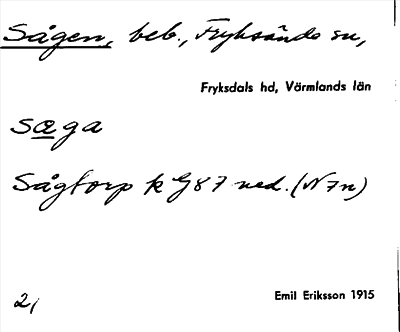 Sågen, beb., Fryksände sn,
Fryksdals hd, Värmlands län
sæga
Sågtorp k G87 ned. (N 7n)
2,
Emil Eriksson 1915